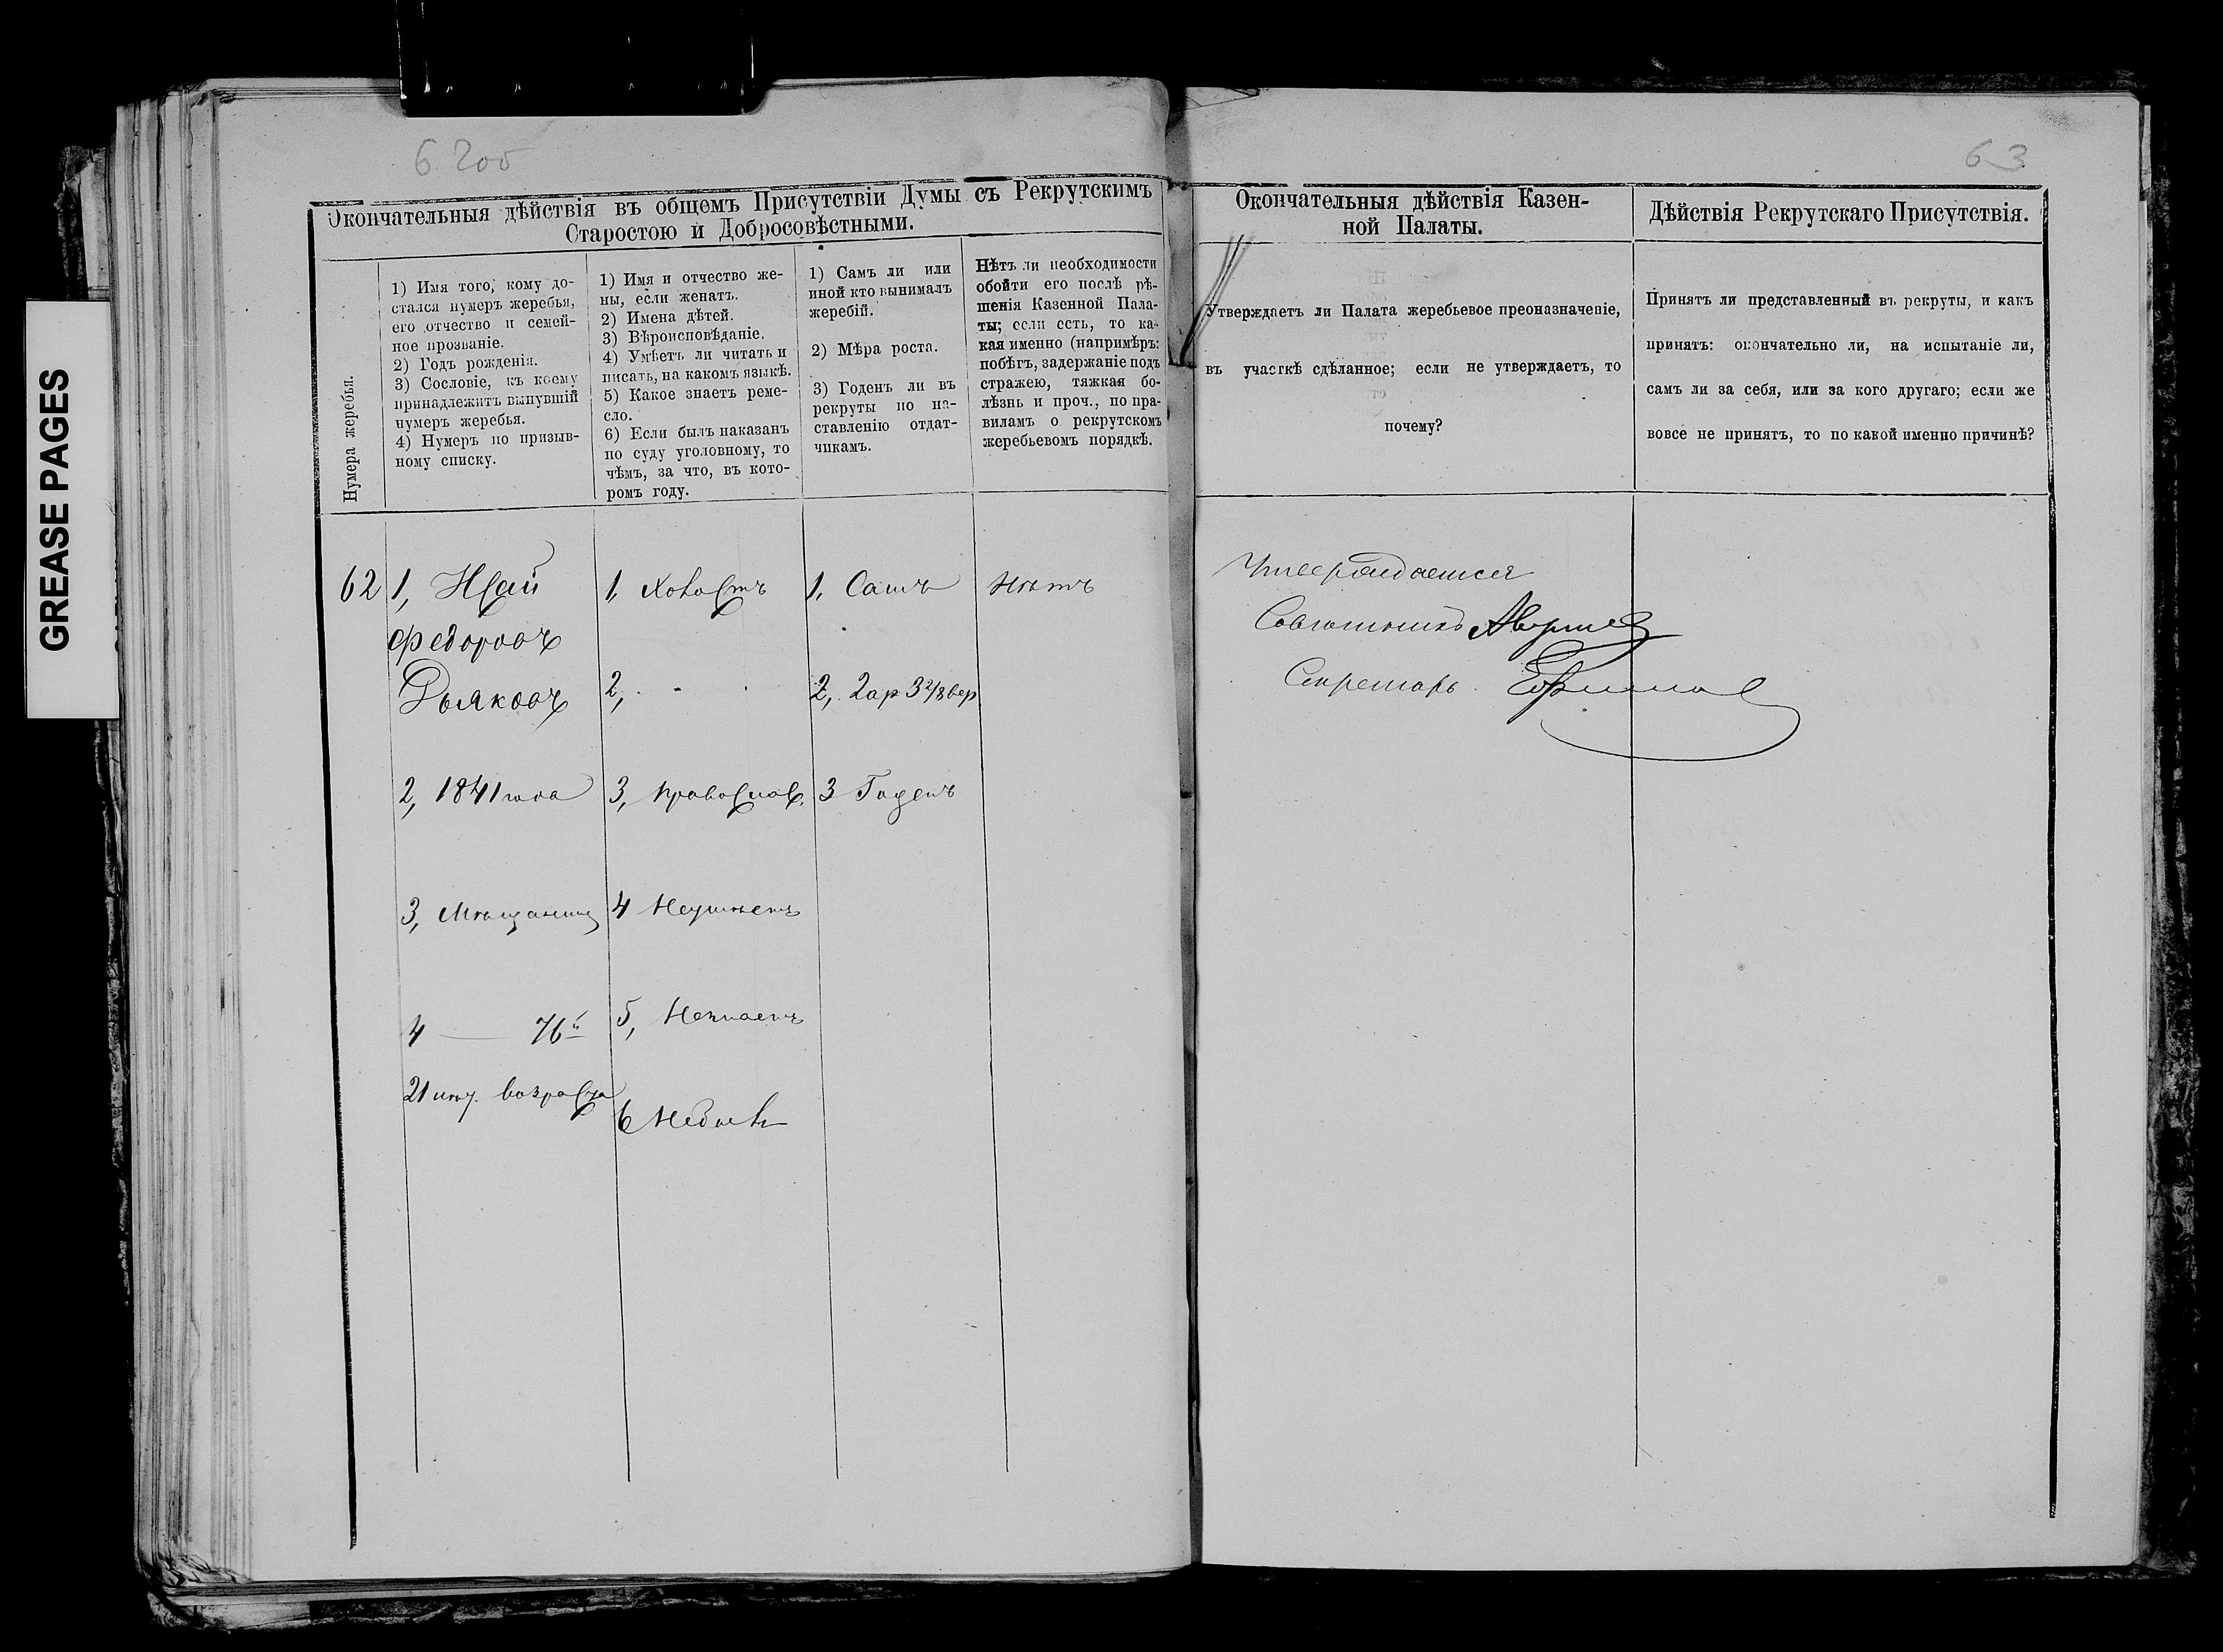 GREASE PAGES
63
Окончательныя дѣйствія въ общемъ Присутствіи Думы съ Рекрутскимъ
Старостою и Добросовѣстными.
Нумера жеребья.
1) Имя того, кому до-
стался нумеръ жеребья,
его отчество и семей-
ное прозваніе.
2) Годъ рожденія.
3) Сословіе, къ коему
принадлежитъ вынувшій
нумеръ жеребья.
4) Нумеръ по призыв-
ному списку.
1) Имя и отчество же-
ны, если женатъ.
2) Имена дѣтей.
3) Вѣроисповѣданіе.
4) Умѣетъ ли читать и
писать, на какомъ языкѣ.
5) Какое знаетъ реме-
сло.
6) Если былъ наказанъ
по суду уголовному, то
чѣмъ, за что, въ кото-
ромъ году.
1) Самъ ли или
иной кто вынималъ
жеребій.
2) Мѣра роста.
3) Годенъ ли въ
рекруты по на-
ставленію отдат-
чикамъ.
Нѣтъ ли необходимости
обойти его послѣ рѣ-
шенія Казенной Пала-
ты; если есть, то ка-
кая именно (напримѣръ:
побѣгъ, задержаніе подъ
стражею, тяжкая бо-
лѣзнь и проч., по пра-
виламъ о рекрутскомъ
жеребьевомъ порядкѣ.
Окончательныя дѣйствія Казен-
ной Палаты.
Утверждаетъ ли Палата жеребьевое преоназначеніе,
въ участкѣ сдѣланное; если не утверждаетъ, то
почему?
Дѣйствія Рекрутскаго Присутствія.
Принятъ ли представленный въ рекруты, и какъ
принятъ: окончательно ли, на испытаніе ли,
самъ ли за себя, или за кого другаго; если же
вовсе не принятъ, то по какой именно причинѣ?
62
1, Исай
Федоровъ
Дьяковъ
2, 1841 года
3, Мѣщанинъ
4 — 76й
21 возраста
1, Холостъ
2, . - .
3, Православ.
4 Неумѣетъ
5, Незнаетъ
6 Небылъ
1, Самъ
2, 2 ар 3 2/8 вер
3 Годенъ
Нѣтъ
Утверждается
Совѣтникъ
Секретарь